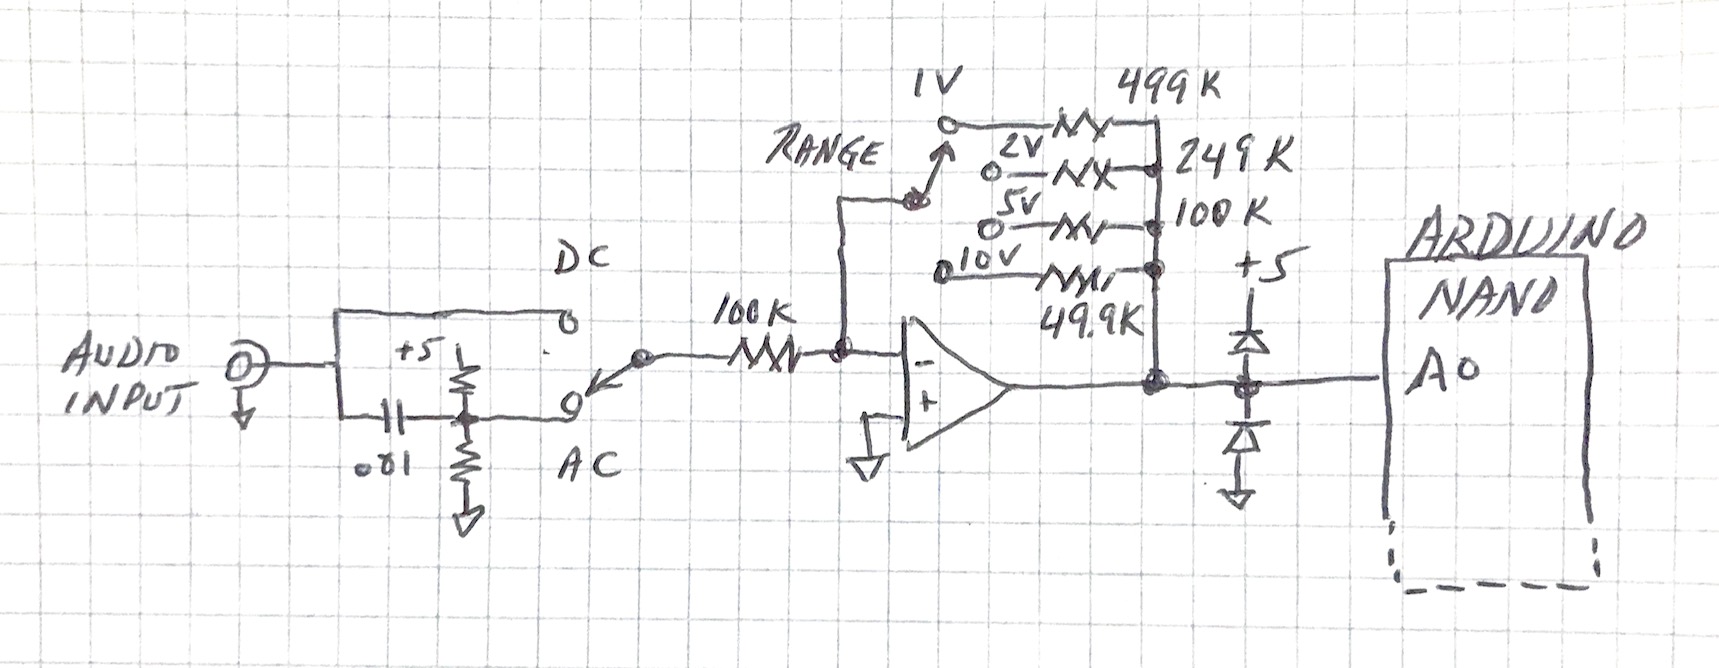 1V
499K
RANGE
2V
249K
5V
100K
10V
49.9K
+5
ARDUINO
NANO
A0
DC
100K
AUDIO
INPUT
+5
.01
AC
-
+